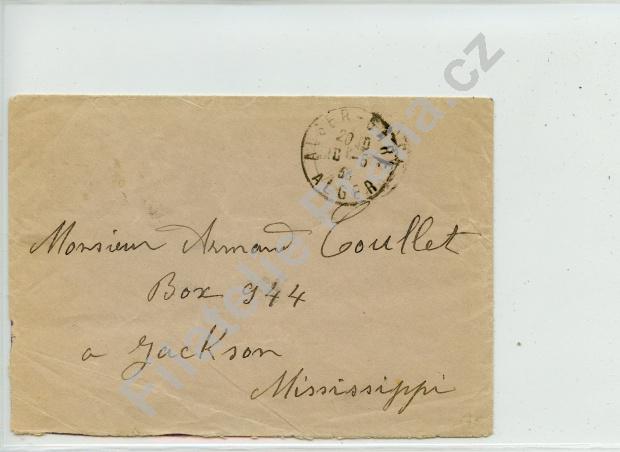 ALGER-GARE
ALGER
Monsieur Armand Coullet
Box 944
a Jackson
Mississippi
Filatelie Praha.cz